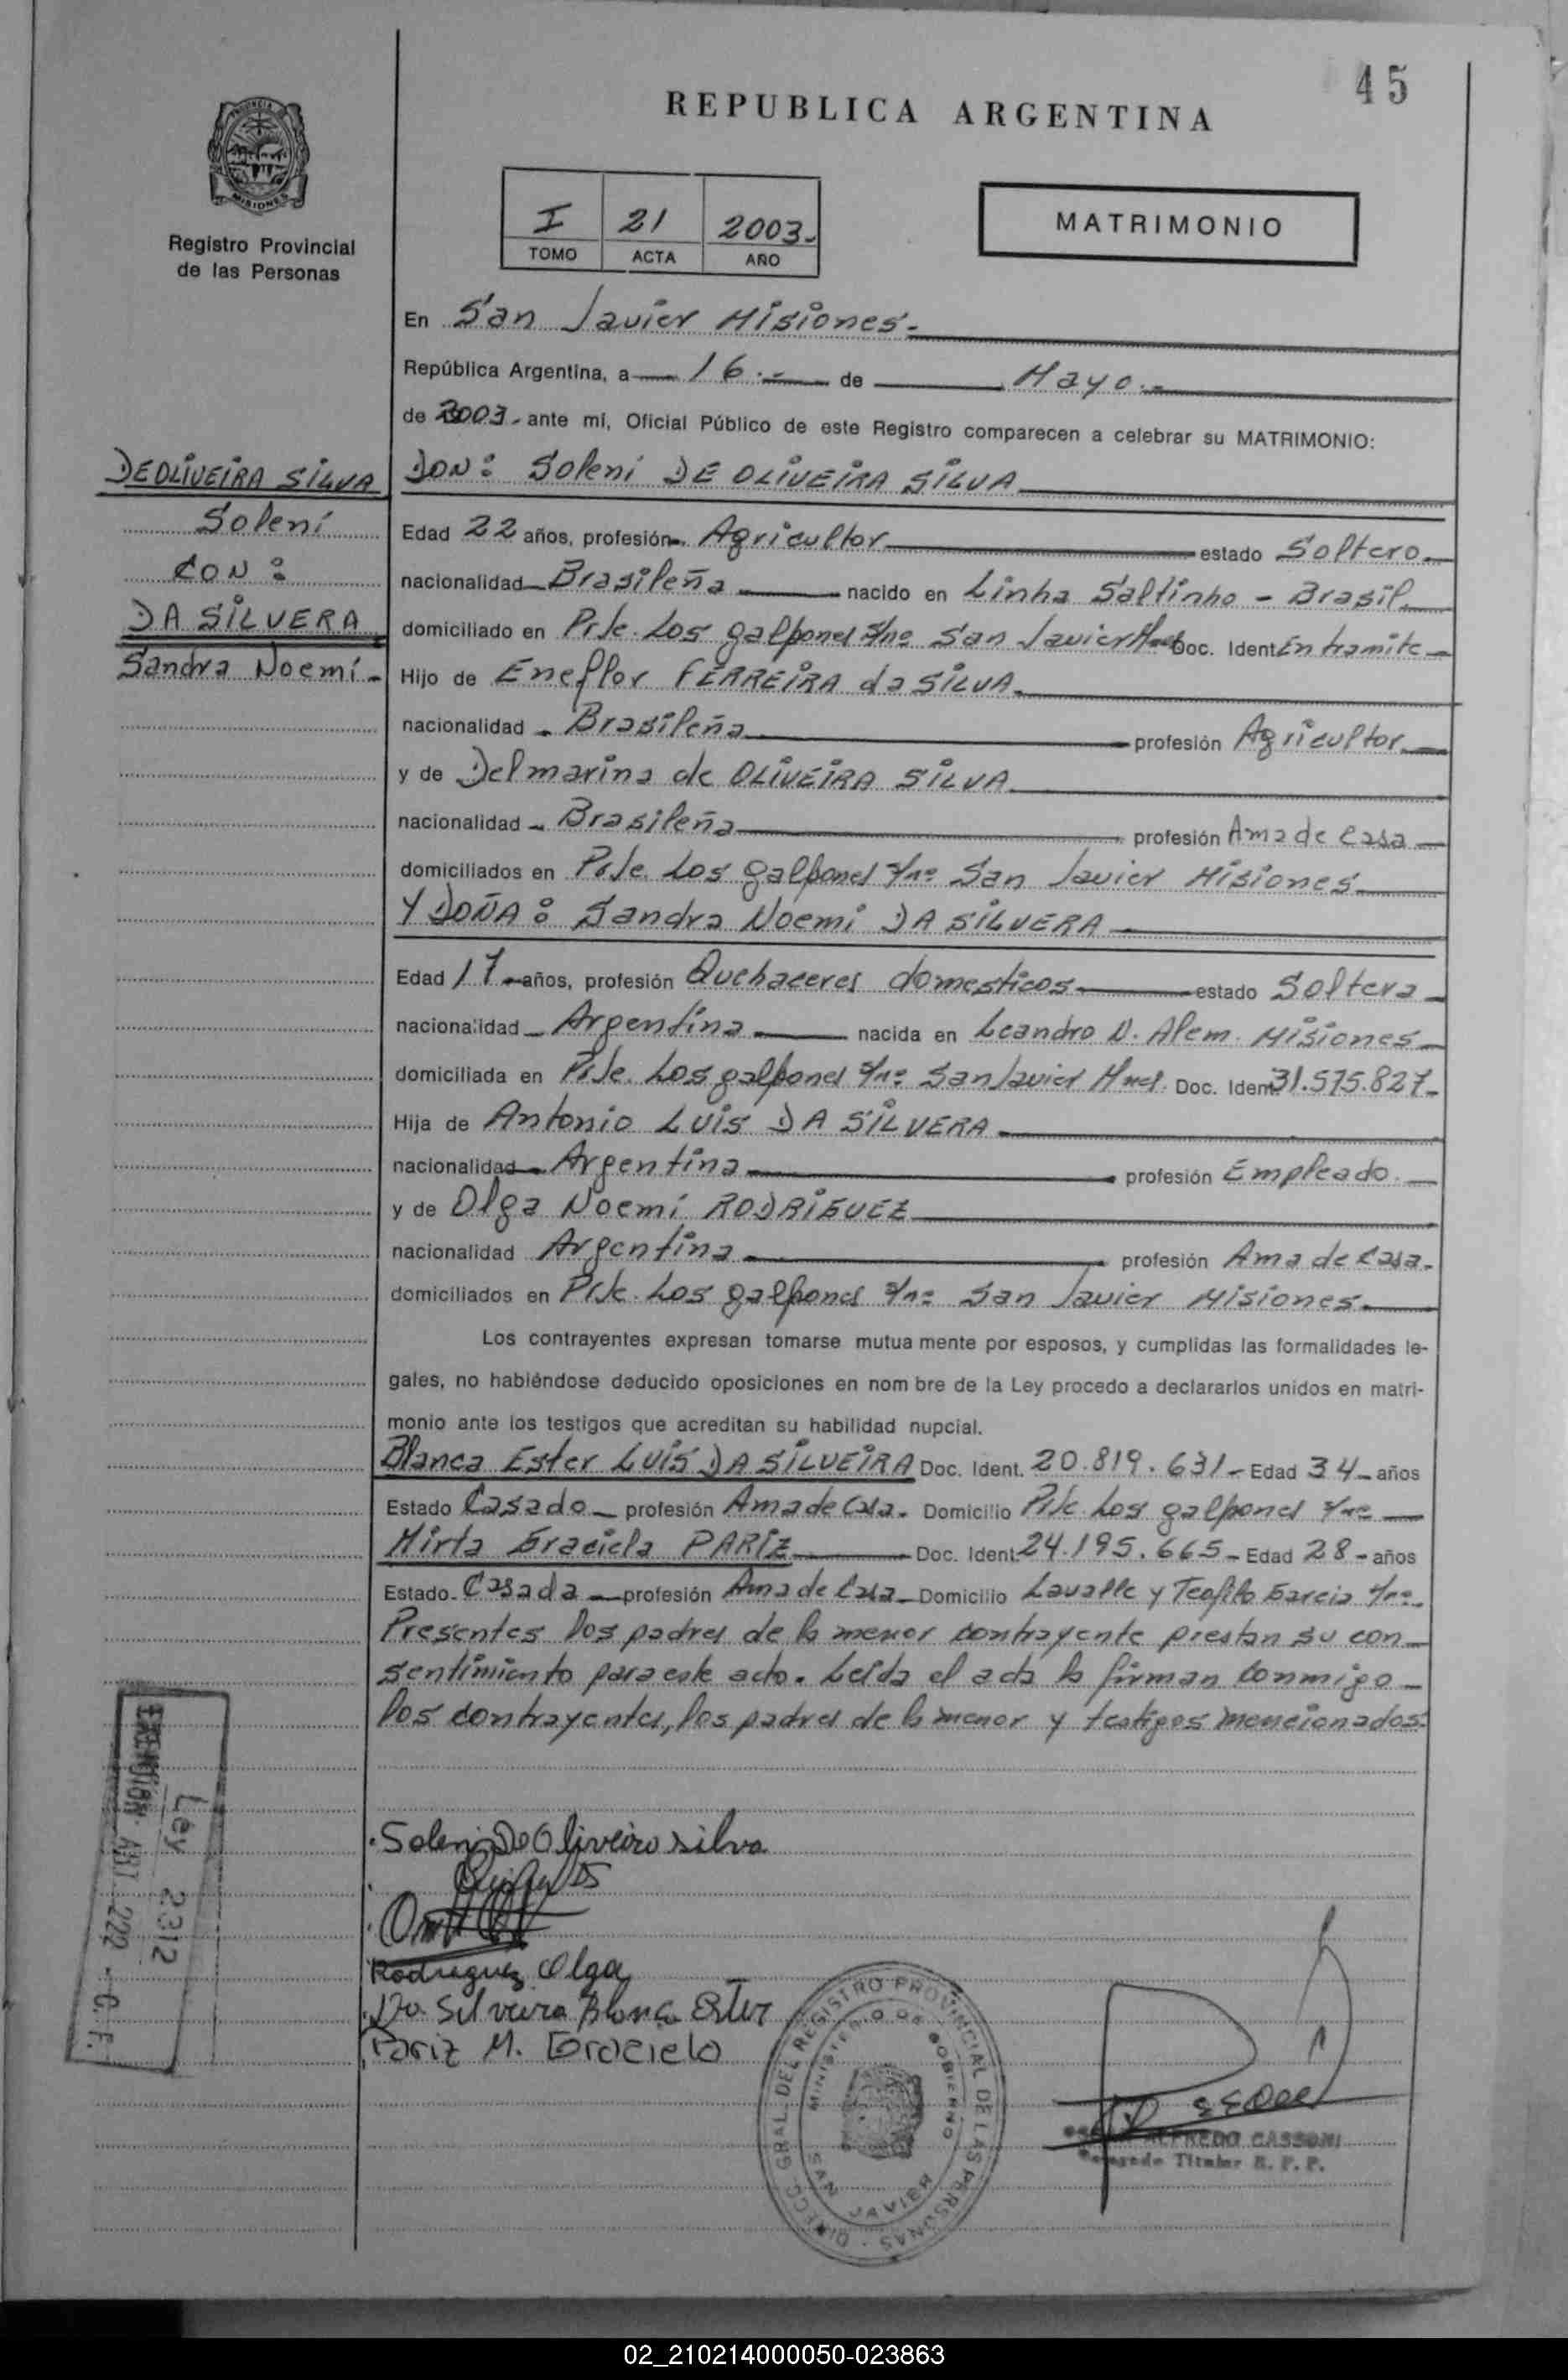 45
REPUBLICA ARGENTINA
MISIONES
Registro Provincial
de las Personas
I 21 2003.-
TOMO ACTA AÑO
MATRIMONIO
En San Javier Misiones.-
República Argentina, a 16.- de Mayo.-
de 2003.- ante mi, Oficial Público de este Registro comparecen a celebrar su MATRIMONIO:
DE OLIVEIRA SILVA
Soleni
CON:
DA SILVERA
Sandra Noemí.-
DON: Soleni DE OLIVEIRA SILVA
Edad 22 años, profesión Agricultor estado Soltero
nacionalidad Brasileña nacido en Linha Saltinho - Brasil
domiciliado en Pje. Los galpones s/nº San Javier Mnes Doc. Ident. En tramite
Hijo de Eneflor FERREIRA da SILVA
nacionalidad Brasileña profesión Agricultor
y de Delmarina de OLIVEIRA SILVA
nacionalidad Brasileña profesión Ama de Casa
domiciliados en Pje. Los galpones s/nº San Javier Misiones
Y DOÑA: Sandra Noemi DA SILVERA
Edad 17 años, profesión Quehaceres domesticos estado Soltera
nacionalidad Argentina nacida en Leandro N. Alem. Misiones
domiciliada en Pje. Los galpones s/nº San Javier Mnes. Doc. Ident. 31.575.827-
Hija de Antonio LUIS DA SILVERA
nacionalidad Argentina profesión Empleado.
y de Olga Noemí RODRIGUEZ
nacionalidad Argentina profesión Ama de Casa.
domiciliados en Pje. Los galpones s/nº San Javier Misiones.
Los contrayentes expresan tomarse mutua mente por esposos, y cumplidas las formalidades le-
gales, no habiéndose deducido oposiciones en nom bre de la Ley procedo a declararlos unidos en matri-
monio ante los testigos que acreditan su habilidad nupcial.
Blanca Ester LUIS DA SILVEIRA Doc. Ident. 20.819.631- Edad 34 años
Estado Casado profesión Ama de Casa. Domicilio Pje. Los galpones s/nº
Mirta Graciela PARIZ Doc. Ident. 24.195.665- Edad 28- años
Estado Casada profesión Ama de Casa Domicilio Lavalle y Teofilo Garcia s/nº.
Presentes los padres de la menor contrayente prestan su con-
sentimiento para este acto. Leida el acta la firman conmigo
los contrayentes, los padres de la menor y testigos mencionados.
Ley 2312
ART. 222 - C.F.
Soleni De Oliveira silva
Rodriguez Olga
Da Silveira Blanca Ester
Pariz M. Graciela
DIRECC. GRAL. DEL REGISTRO PROVINCIAL DE LAS PERSONAS
MINISTERIO DE GOBIERNO
SAN JAVIER
ALFREDO CASSONI
Titular R. P. P.
02_210214000050-023863